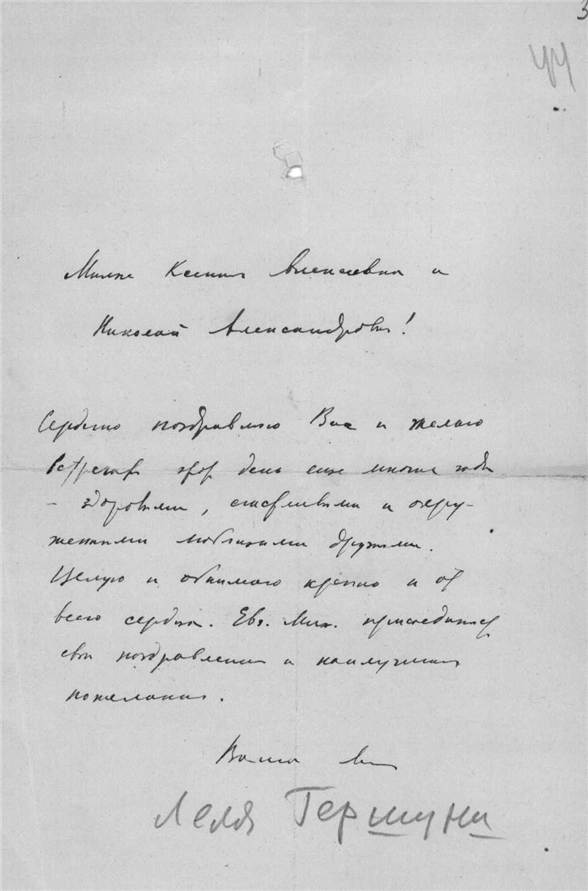 3
44
Милые Ксения Алексеевна и
Николай Александрович!
Сердечно поздравляю Вас и желаю
встречать этот день еще многие годы
– здоровыми, счастливыми и окру-
женными любящими друзьями.
Целую и обнимаю крепко и от
всего сердца. Евг. Мих. присоединяет
свои поздравления и наилучшие
пожелания.
Ваша
Леля Гершуни